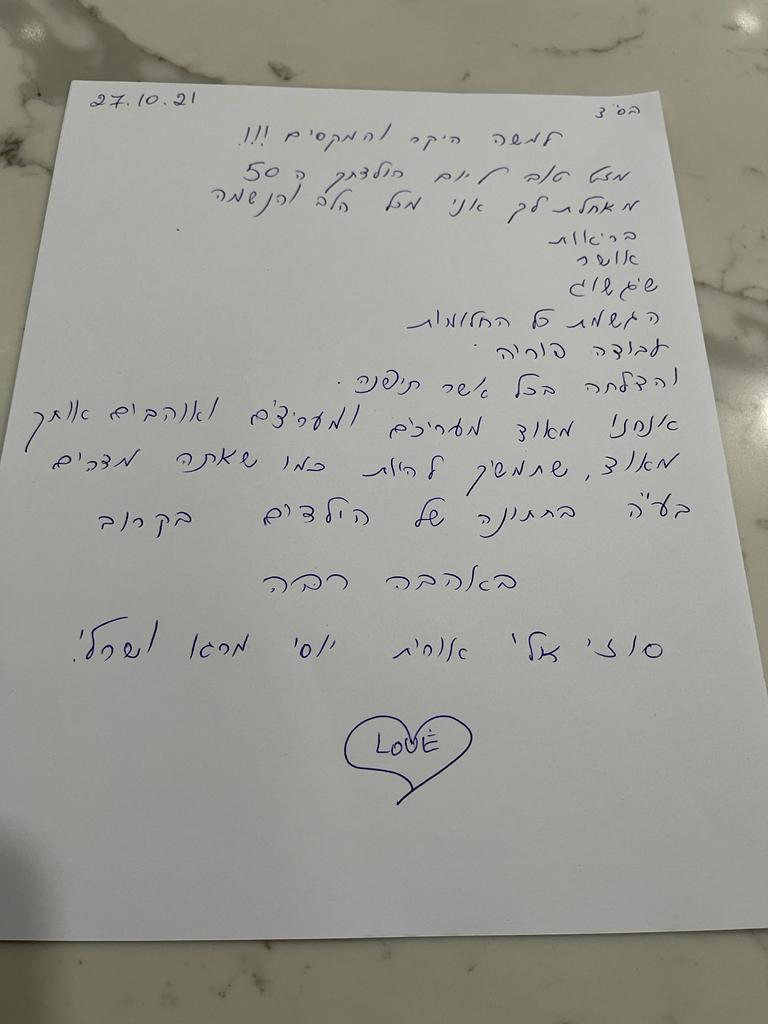 בס"ד
27.10.21
למשה היקר והמקסים !!!
מזל טוב ליום הולדתך ה 50
מאחלת לך אני מכל הלב והנשמה
בריאות
אושר
שיגשוג
הגשמת כל החלומות
עבודה פוריה
והצלחה בכל אשר תיפנה.
אנחנו מאוד מעריכים ומעריצים ואוהבים אותך
מאוד, שתמשיך להיות כמו שאתה מדהים
בע"ה בחתונה של הילדים בקרוב
באהבה רבה
סוזי אלי אורית יוסי מרגו
LOVE